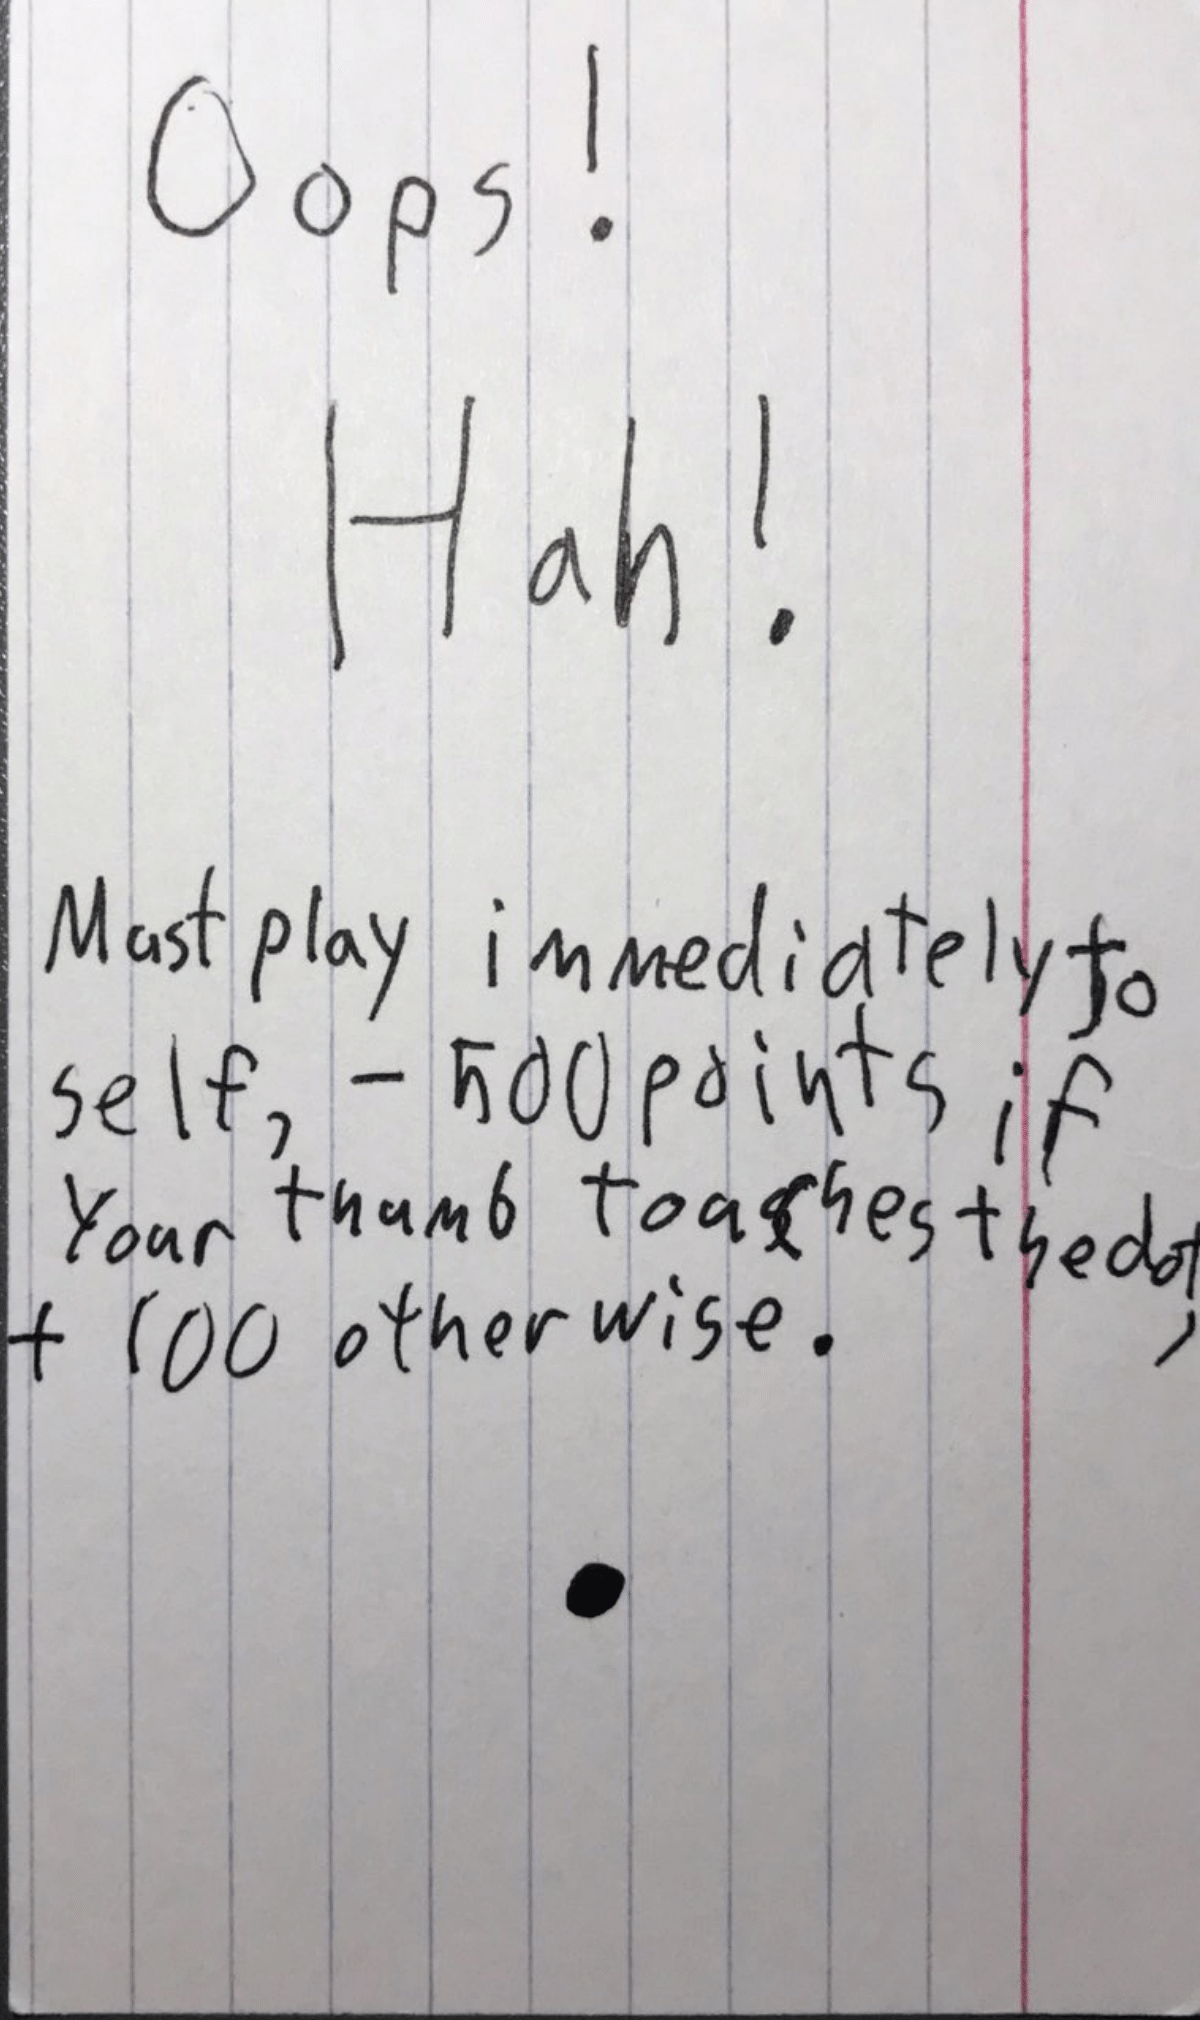 Oops!
Hah!
Must play immediately to
self, - 500 points if
Your thumb touches the dot,
+ 100 otherwise.